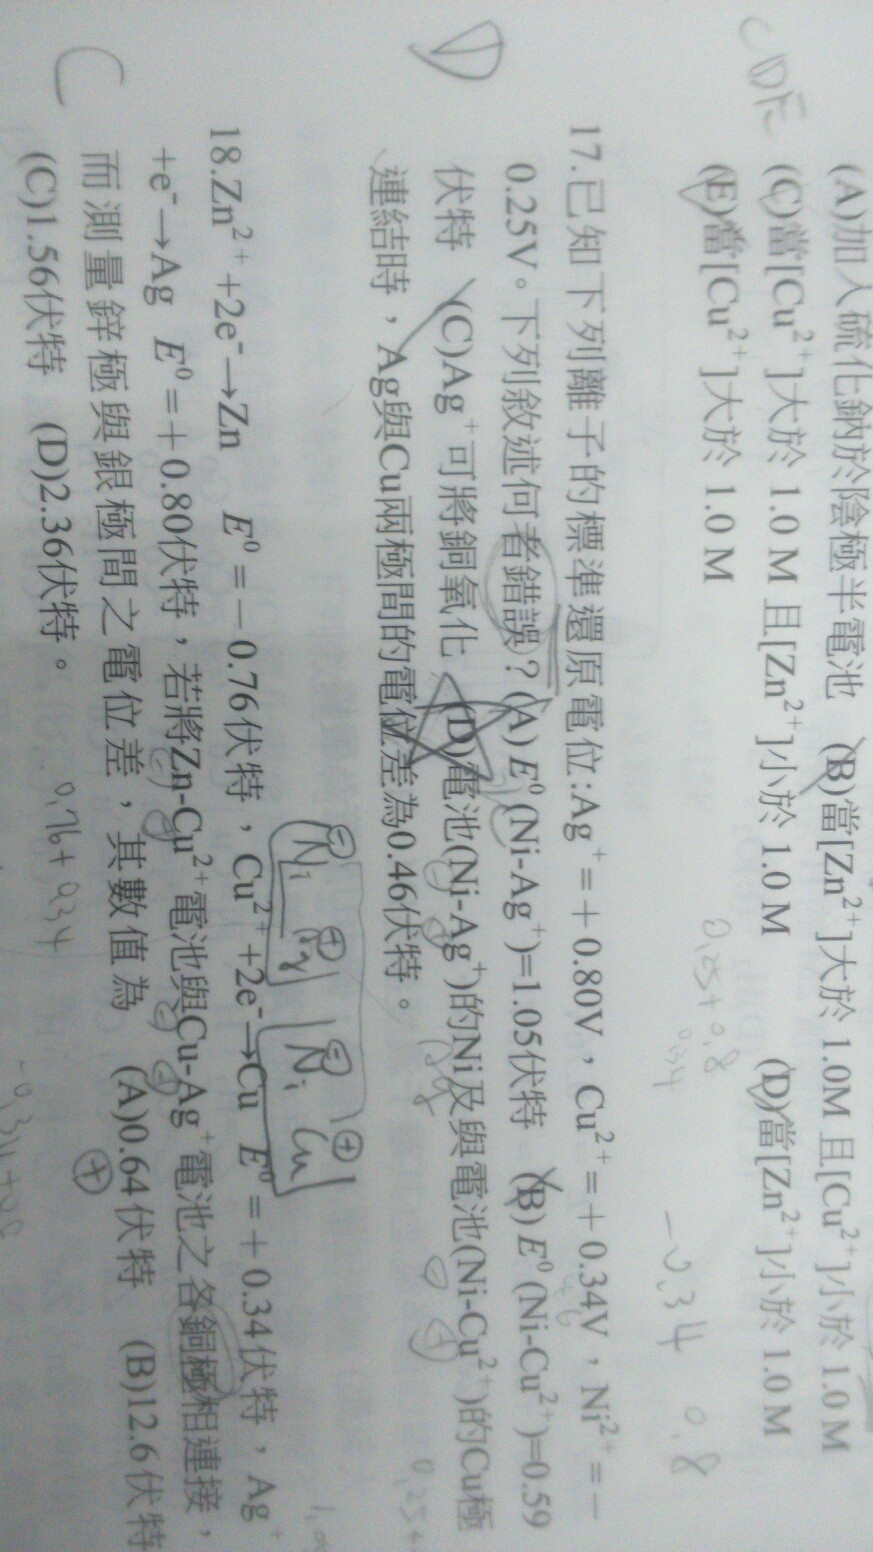 (A)加入硫化鈉於陰極半電池 (B)當[Zn²⁺]大於 1.0M 且[Cu²⁺]小於 1.0 M
CDE (C)當[Cu²⁺]大於 1.0 M 且[Zn²⁺]小於 1.0 M (D)當[Zn²⁺]小於 1.0 M
(E)當[Cu²⁺]大於 1.0 M
0.25+0.8
0.34
-0.34 0.8
17.已知下列離子的標準還原電位:Ag⁺=+0.80V，Cu²⁺=+0.34V，Ni²⁺=－
0.25V。下列敘述何者錯誤？(A) E⁰(Ni-Ag⁺)=1.05伏特 (B) E⁰(Ni-Cu²⁺)=0.59
D 伏特 (C)Ag⁺可將銅氧化 (D)電池(Ni-Ag⁺)的Ni及與電池(Ni-Cu²⁺)的Cu極
連結時，Ag與Cu兩極間的電位差為0.46伏特。
⊖ ⊕ ⊖ ⊕
Ni Ag Ni Cu
18.Zn²⁺+2e⁻→Zn E⁰=－0.76伏特，Cu²⁺+2e⁻→Cu E⁰=+0.34伏特，Ag⁺
+e⁻→Ag E⁰=+0.80伏特，若將Zn-Cu²⁺電池與Cu-Ag⁺電池之各銅極相連接，
C 而測量鋅極與銀極間之電位差，其數值為 (A)0.64伏特 (B)12.6伏特
(C)1.56伏特 (D)2.36伏特。
0.76+0.34